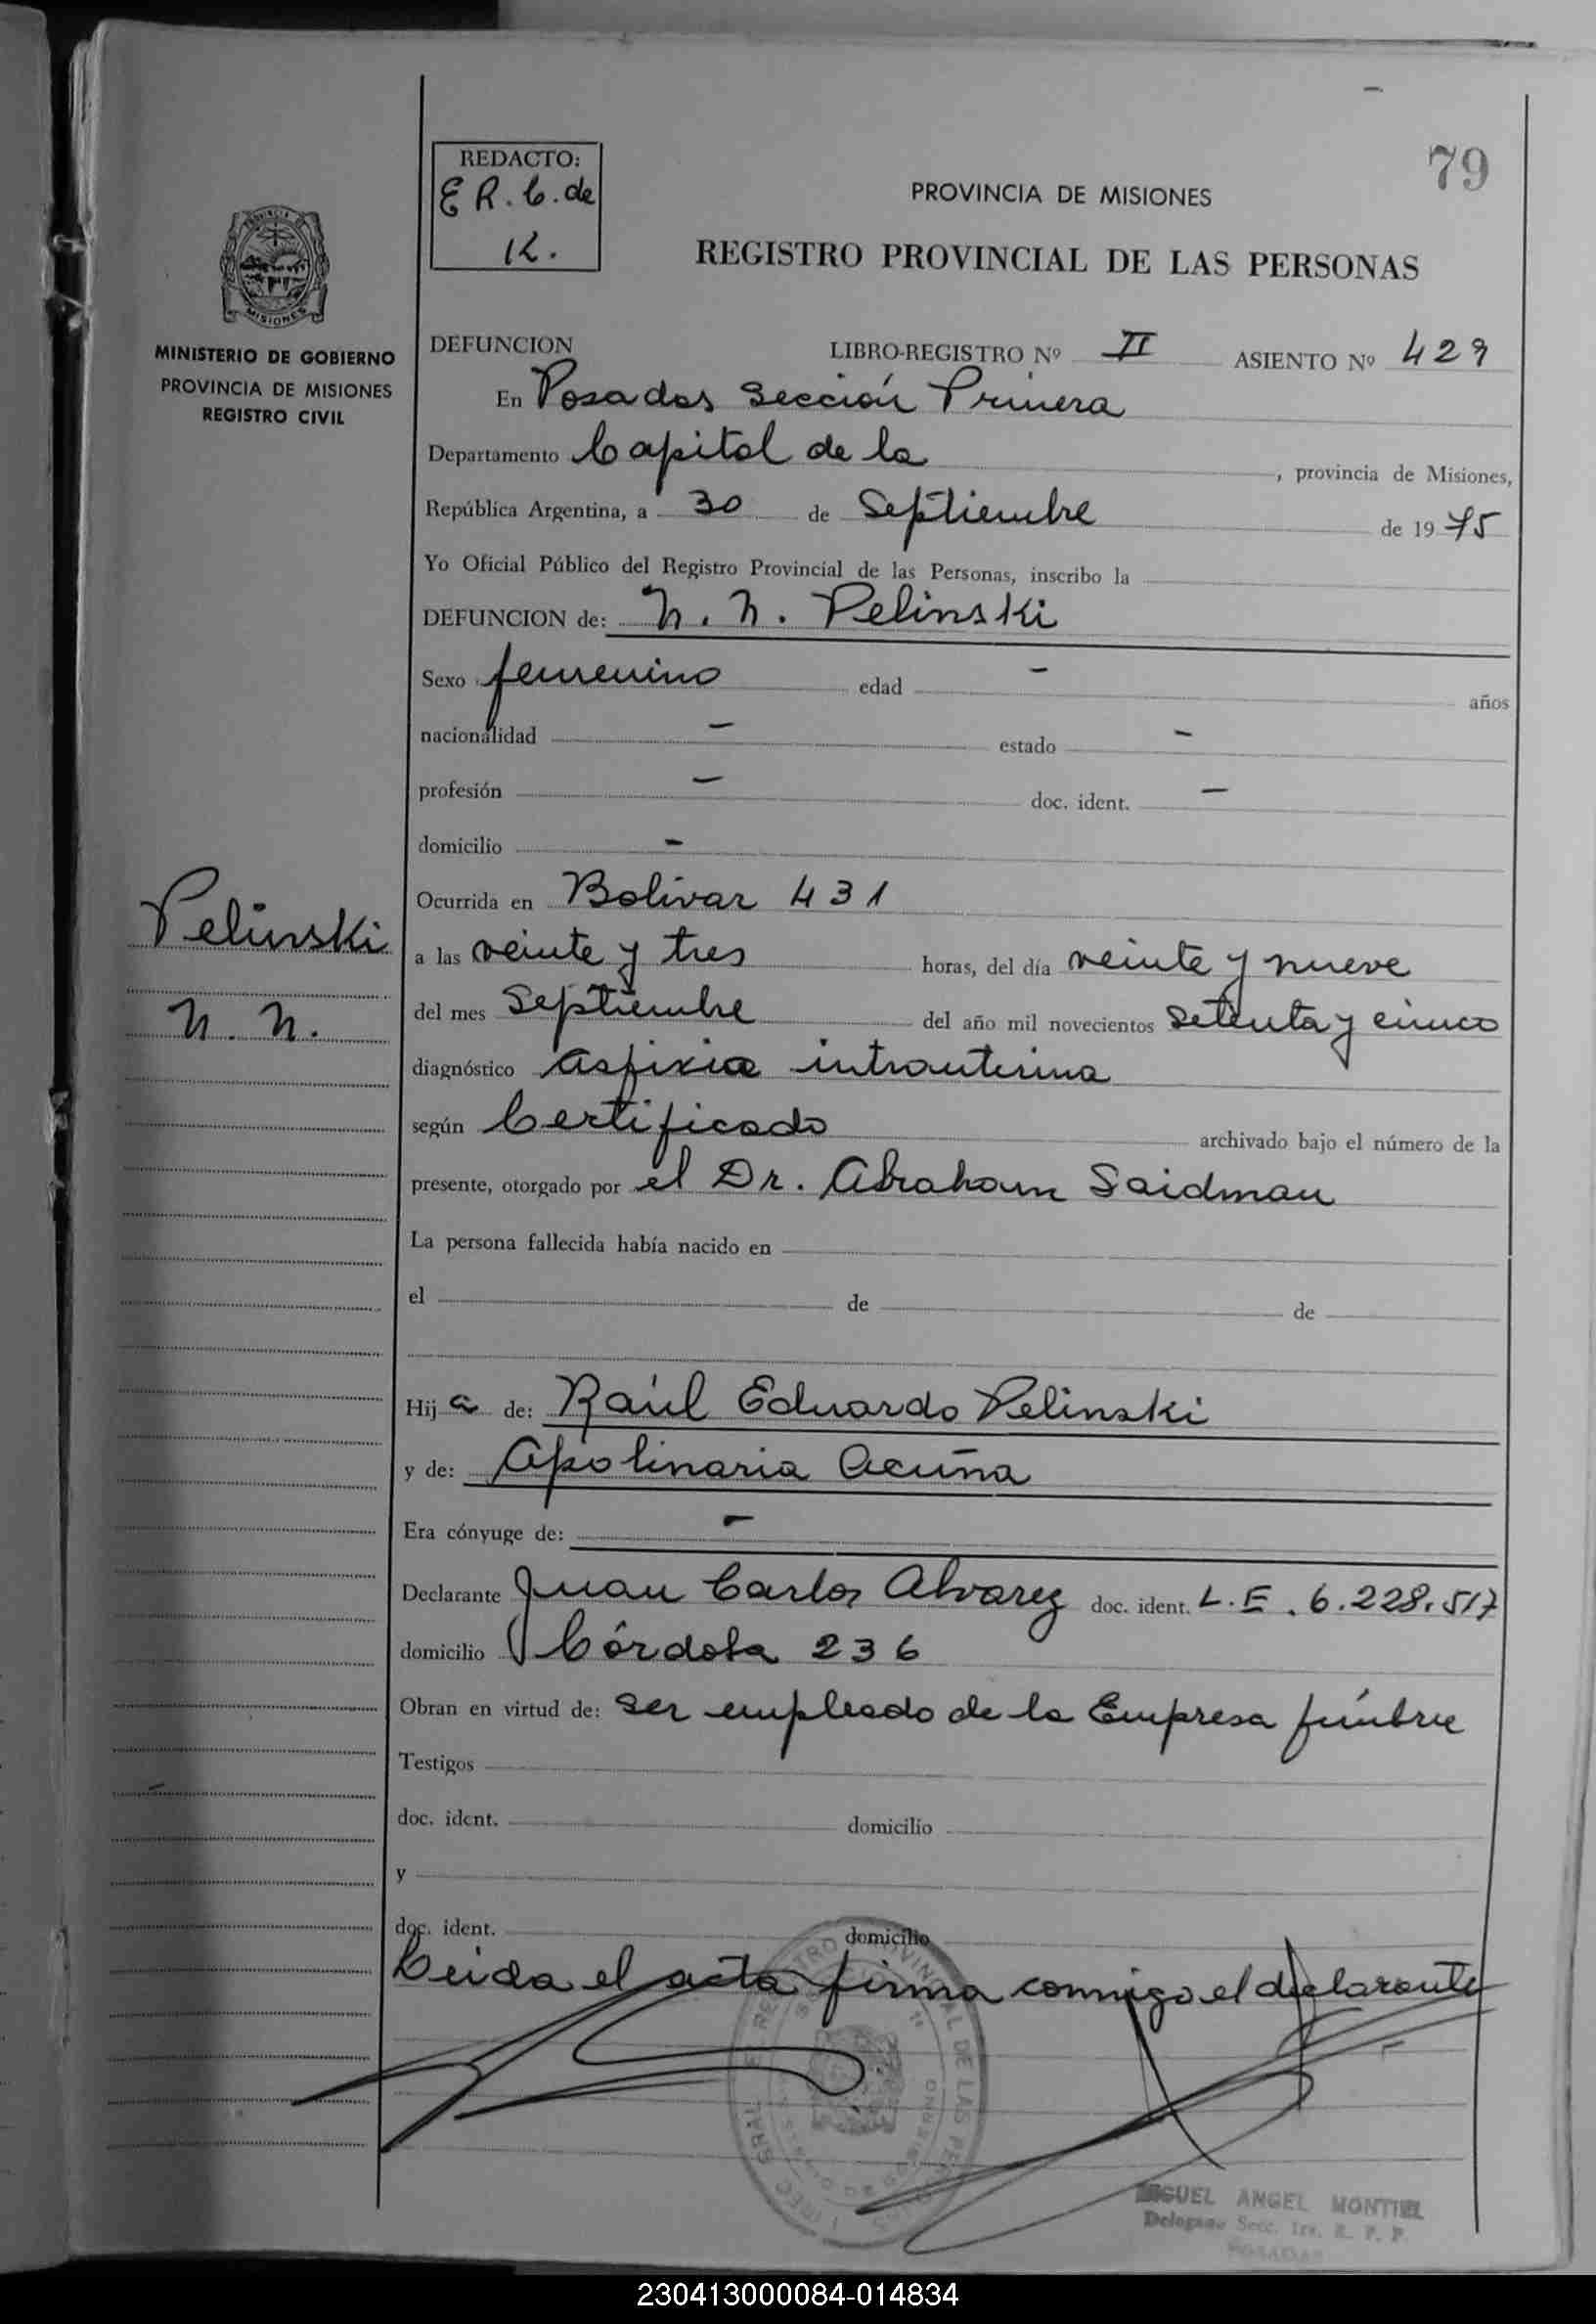 79
REDACTO:
E R. C. de
K.
PROVINCIA DE MISIONES
REGISTRO PROVINCIAL DE LAS PERSONAS
MISIONES
MINISTERIO DE GOBIERNO
PROVINCIA DE MISIONES
REGISTRO CIVIL
DEFUNCION LIBRO-REGISTRO Nº II ASIENTO Nº 429
En Posadas Sección Primera
Departamento Capital de la , provincia de Misiones,
República Argentina, a 30 de Septiembre de 1975
Yo Oficial Público del Registro Provincial de las Personas, inscribo la
DEFUNCION de: N. N. Pelinski
Sexo femenino edad - años
nacionalidad - estado -
profesión - doc. ident. -
domicilio -
Ocurrida en Bolívar 431
Pelinski
a las veinte y tres horas, del día veinte y nueve
N. N.
del mes Septiembre del año mil novecientos setenta y cinco
diagnóstico Asfixia intrauterina
según Certificado archivado bajo el número de la
presente, otorgado por el Dr. Abraham Saidman
La persona fallecida había nacido en
el de de
Hija de: Raúl Eduardo Pelinski
y de: Apolinaria Acuña
Era cónyuge de: -
Declarante Juan Carlos Alvarez doc. ident. L.E. 6.228.517
domicilio Córdoba 236
Obran en virtud de: ser empleado de la Empresa fúnbre
Testigos
doc. ident. domicilio
y
doc. ident. domicilio
Leida el acta firma conmigo el declarante
MIGUEL ANGEL MONTIEL
Delegado Secc. 1ra. R. P. P.
POSADAS
230413000084-014834